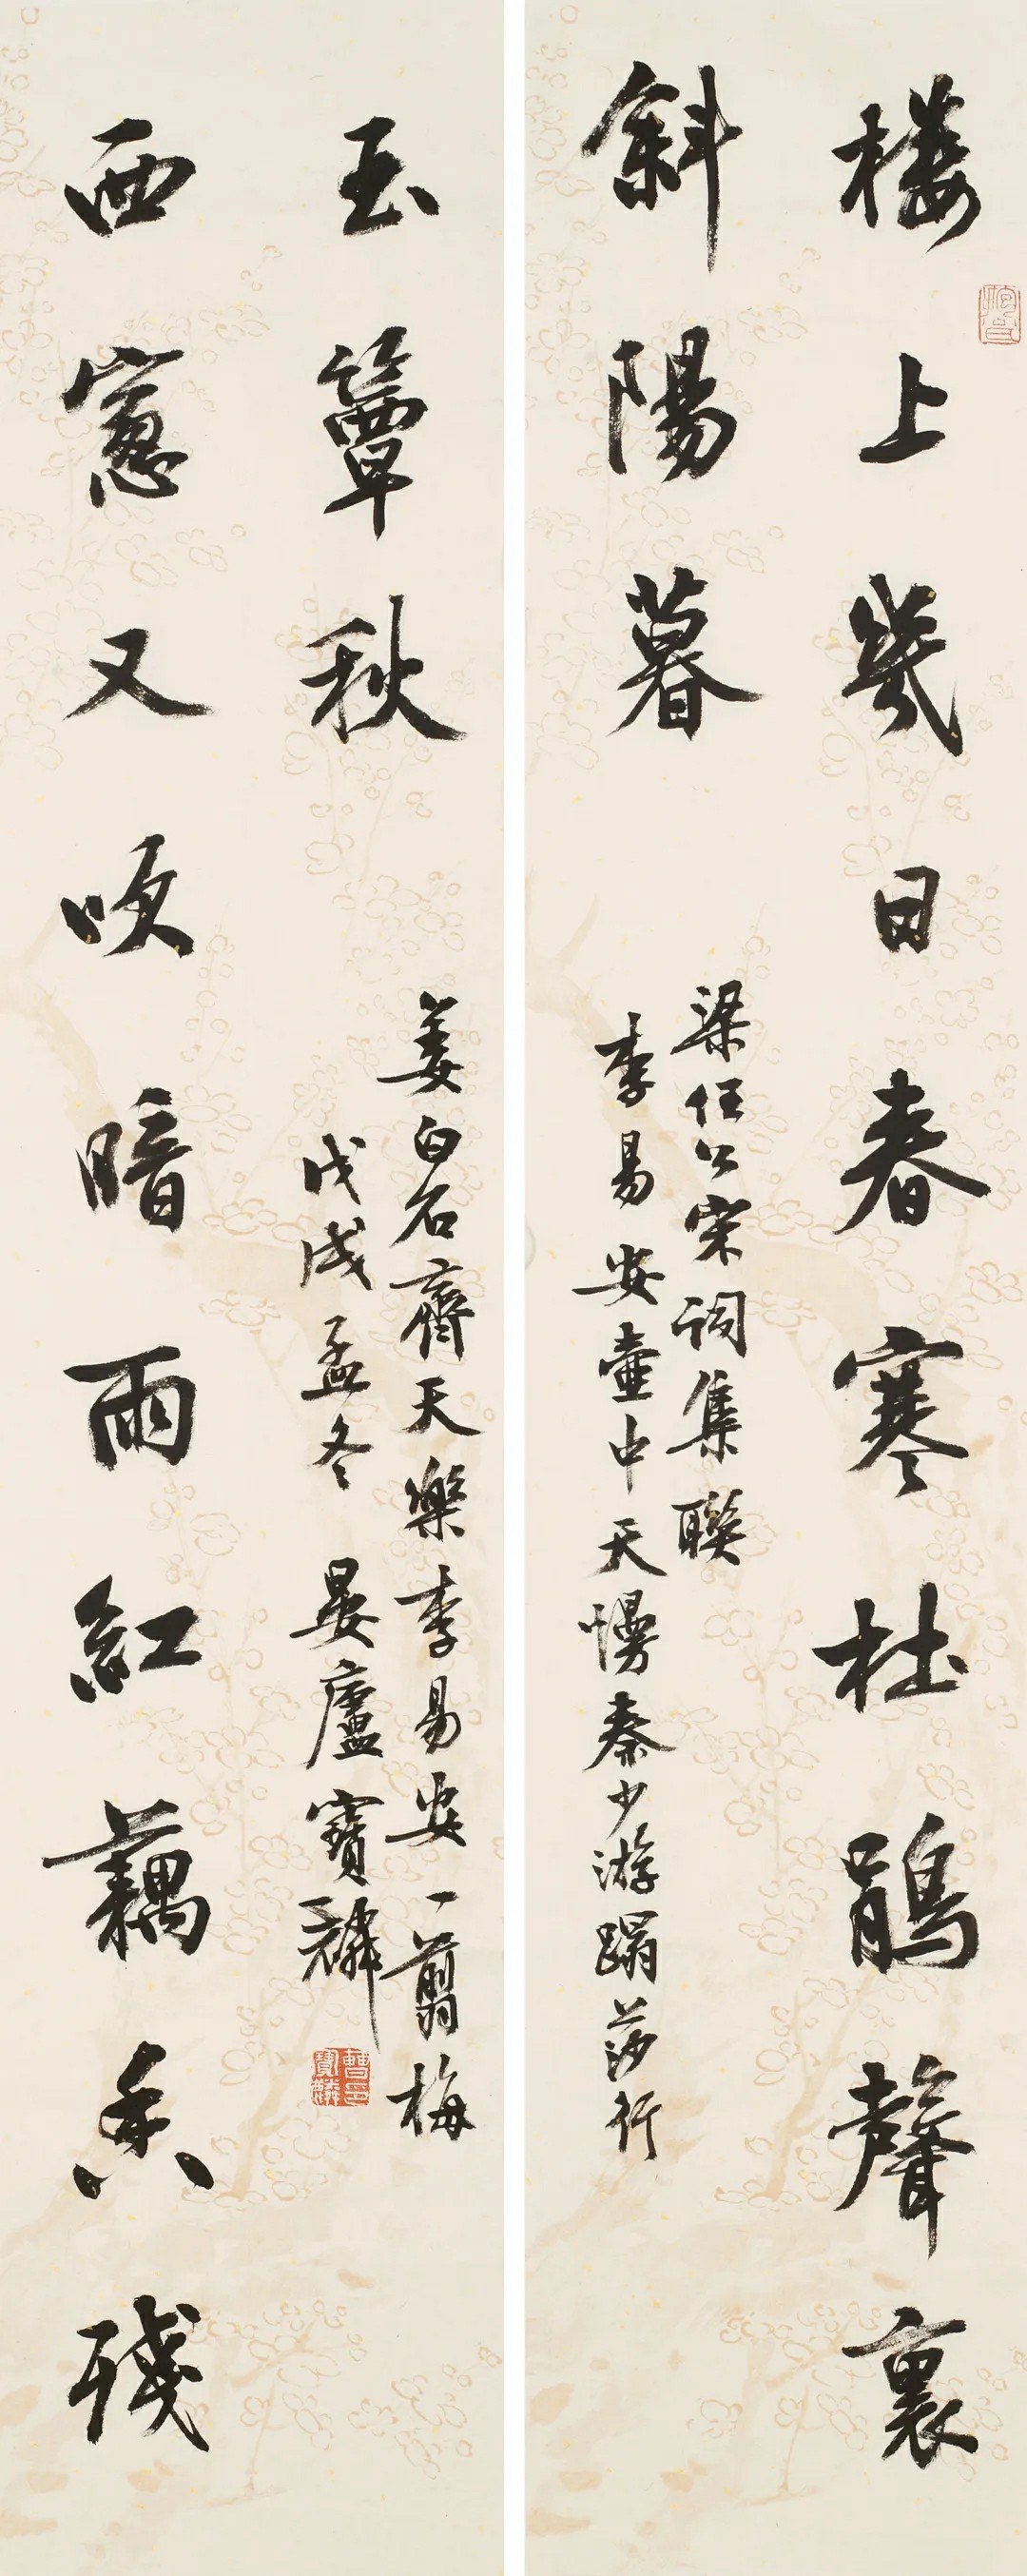 楼上幾日春寒杜鵑聲裏
斜陽暮
梁任公宋詞集聯
李易安壺中天慢秦少游蹋莎行
西窻又吹暗雨紅藕香殘
玉簟秋
姜白石齊天樂李易安一翦梅
戊戌孟冬 晏廬寶麟
曹印寶麟